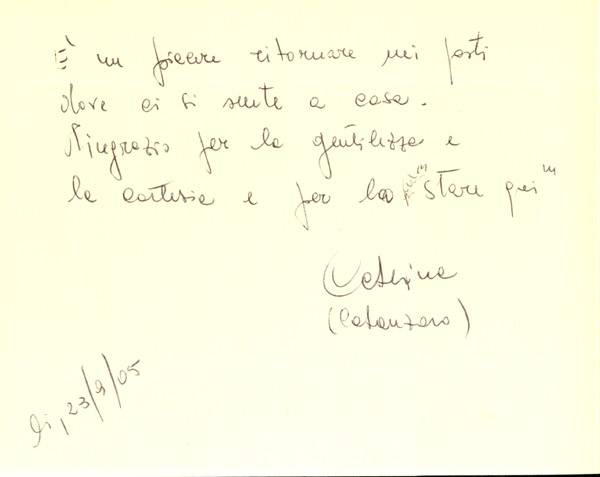 È un piacere ritornare nei posti
dove ci si sente a casa.
Ringrazio per la gentilezza e
la cortesia e per lo "stare qui"
Caterina
(Catanzaro)
lì, 23/9/05